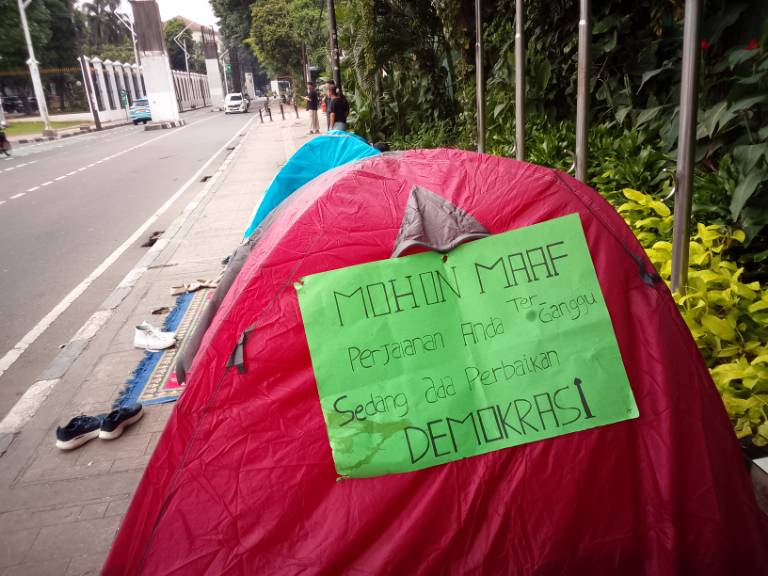 MOHON MAAF
Perjalanan Anda Ter-Ganggu
Sedang ada Perbaikan
DEMOKRASI